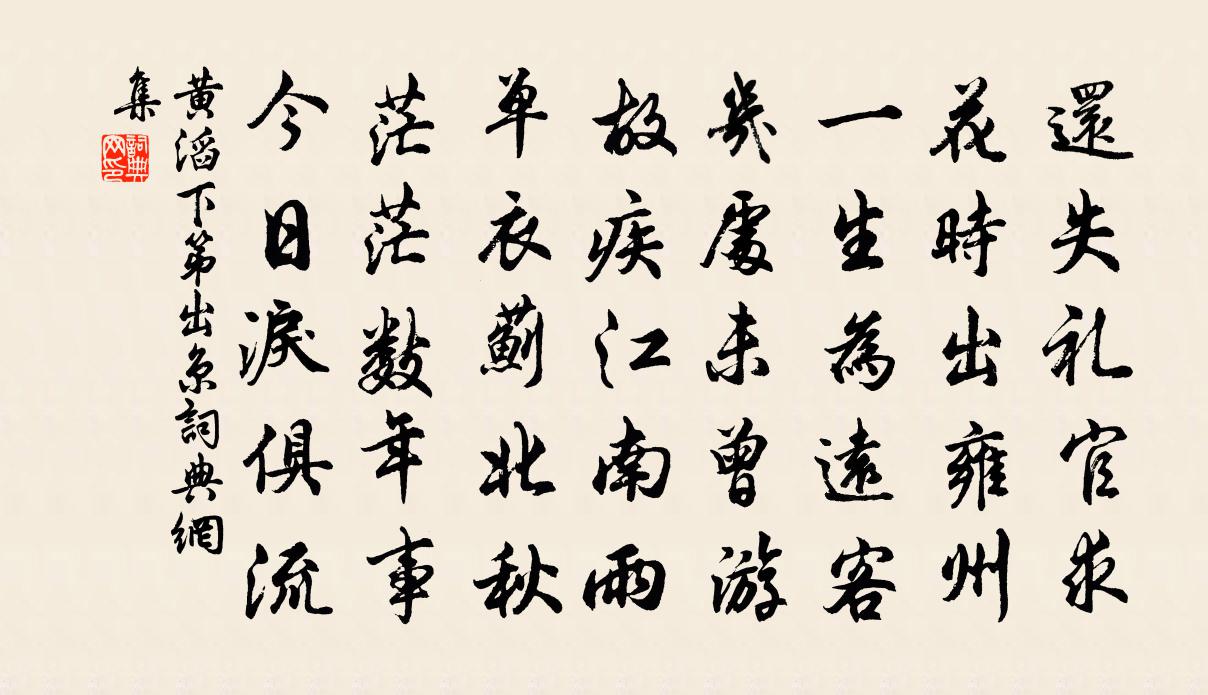 還失礼官求
花時出雍州
一生為遠客
幾處未曾游
故疾江南雨
单衣薊北秋
茫茫数年事
今日淚俱流
黄滔下第出京詞典網
集
詞典網印